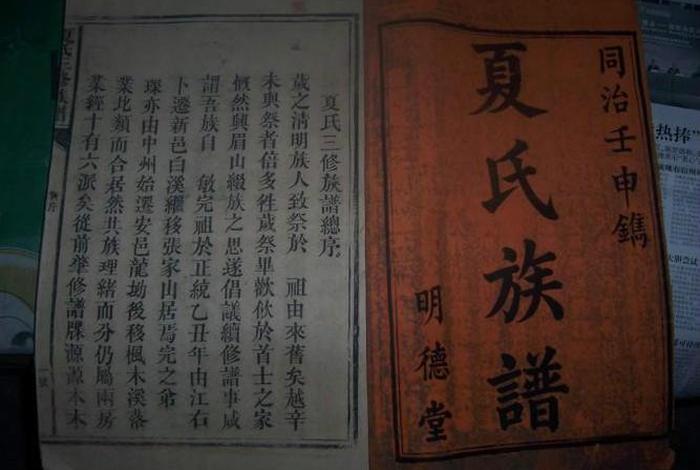 同治壬申鐫
夏氏族譜
明德堂
夏氏三修族譜總序
歲之清明族人致祭於 祖由來舊矣越辛
未與祭者倍多徃歲祭畢歡飲於首士之家
慨然興眉山綴族之思遂倡議續修譜事咸
謂吾族自 敏完祖於正統乙丑年由江右
卜遷新邑白溪繼移張家山居焉完之爺
璨亦由中州始遷安邑龍坳後移楓木溪落
業比類而合居然共族理緒而分仍屬兩房
業經十有六派矣從前華修譜牒源源本本
一號
熱捧